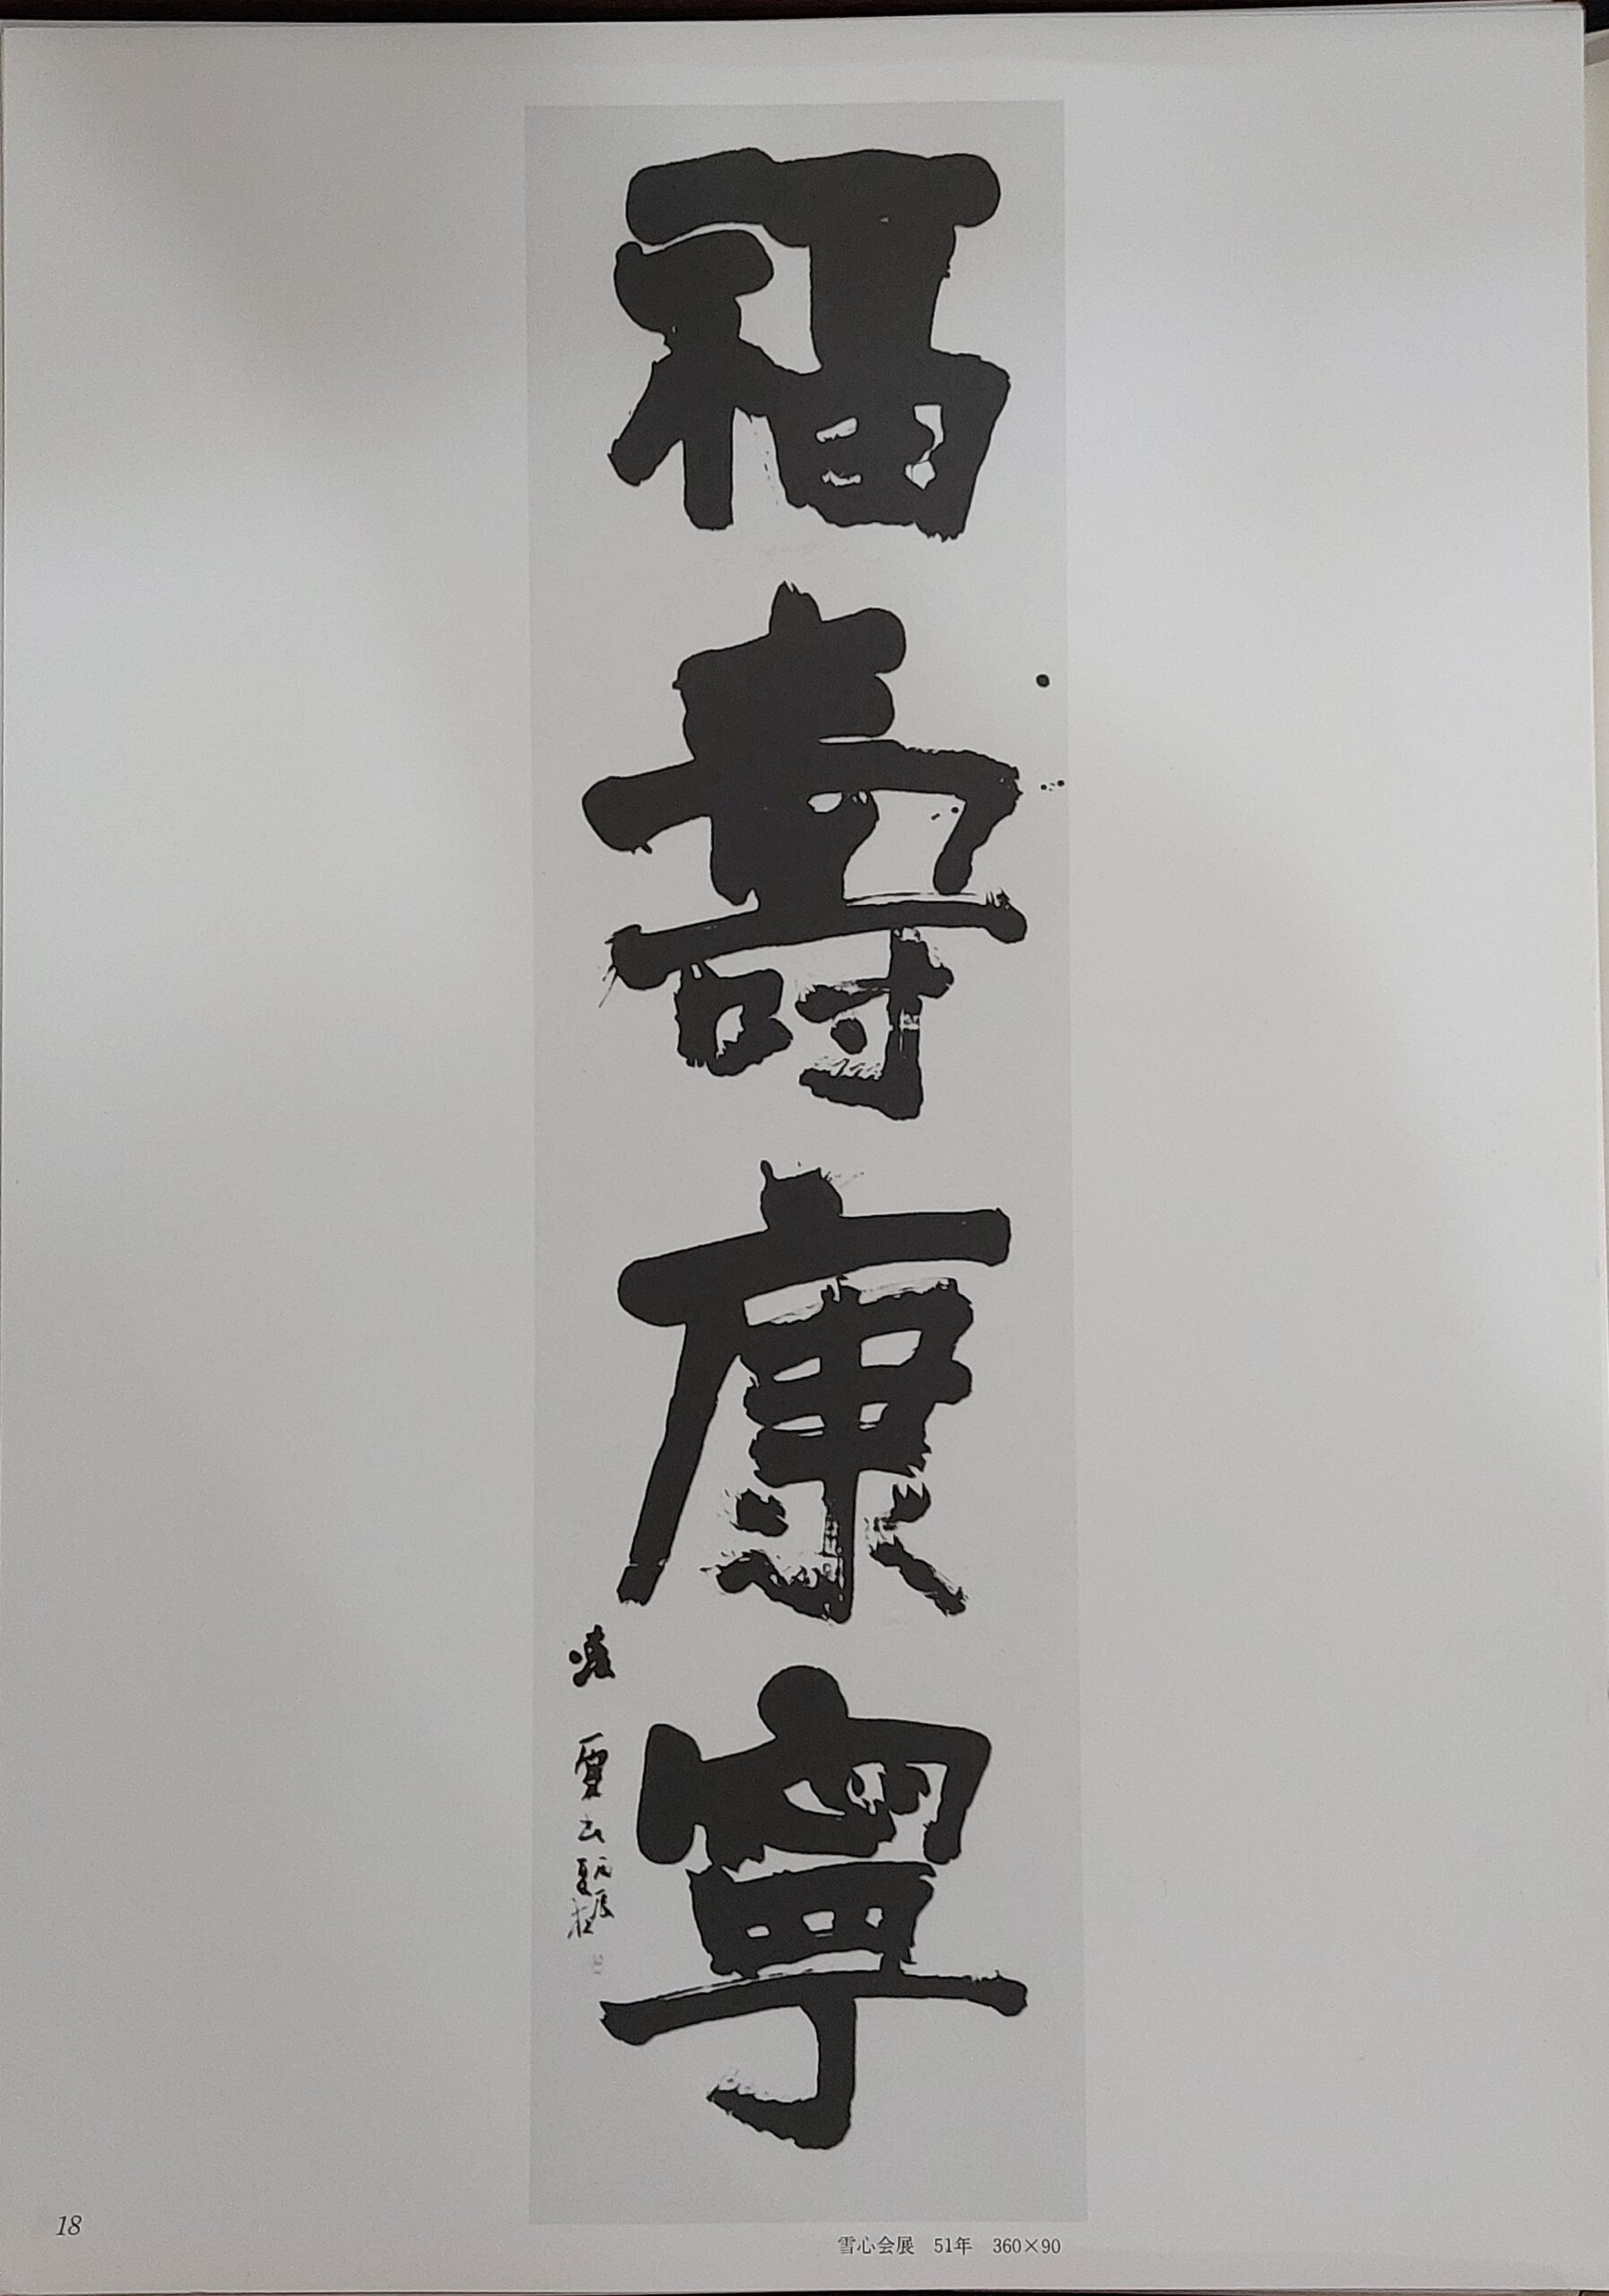 福壽康寧
18
雪心会展 51年 360×90